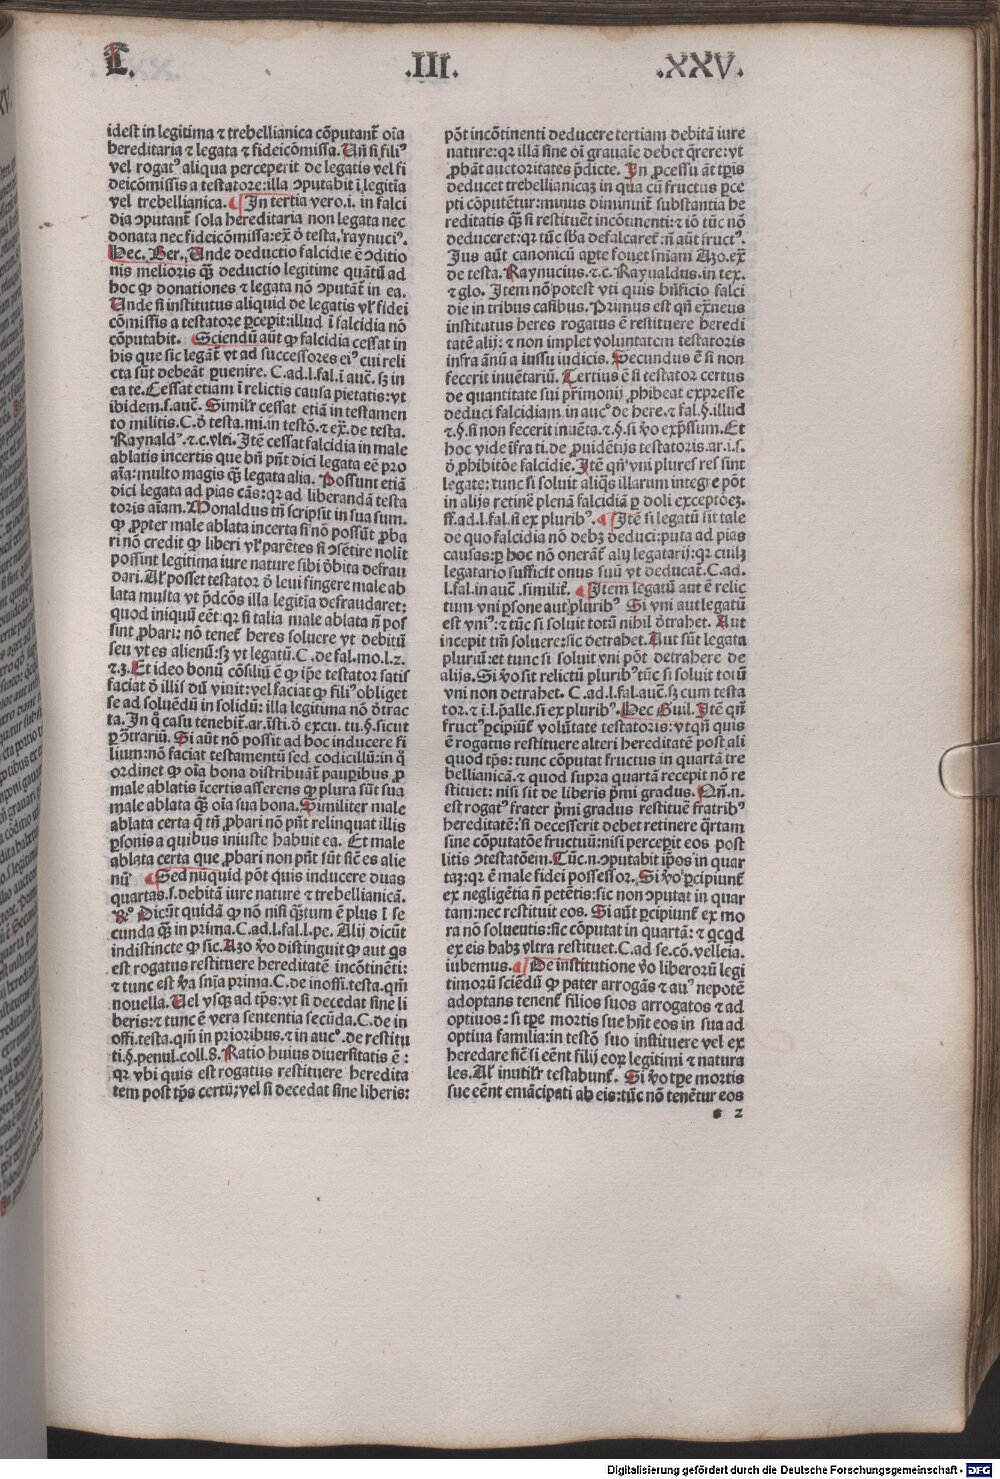 L. .III. .XXV.
idest in legitima ⁊ trebellianica cõputant̃ oĩa
hereditaria ⁊ legata ⁊ fideicõmissa. Vñ si fili⁹
vel rogat⁹ aliqua perceperit de legatis vel fi
deicõmissis a testatore: illa ↄputabit ĩ legitĩa
vel trebellianica. ¶ In tertia vero .i. in falci
dia ↄputant̃ sola hereditaria non legata nec
donata nec fideicõmissa: ex̃ ð testa. raynuci⁹.
Hec. Ber. Unde deductio falcidie ẽ ↄditio
nis melioris q̃ȝ deductio legitime quãtũ ad
hoc ꝙ donationes ⁊ legata nõ ↄputãt̃ in ea.
Unde si institutus aliquid de legatis vl̃ fidei
cõmissis a testatore ꝑcepit: illud ĩ falcidia nõ
cõputabit. Sciendũ aũt ꝙ falcidia cessat in
his que sic legãt̃ vt ad successores ei⁹ cui reli
cta sũt debeãt ꝑuenire. C. ad. l. fal. ĩ auc̃. sȝ in
ea te. Cessat etiam ĩ relictis causa pietatis: vt
ibidem. s. auc̃. Simil̃r cessat etiã in testamen
to militis. C. ð testa. mi. in testõ. ⁊ ex̃. de testa.
Raynald⁹. ⁊. c. vlti. Itẽ cessat falcidia in male
ablatis incertis que bñ pñt dici legata eẽ pro
aĩa: multo magis q̃ȝ legata alia. Possunt etiã
dici legata ad pias cãs: qr ad liberandã testa
toris aĩam. Monaldus tñ scripsit in sua sum.
ꝙ ꝓpter male ablata incerta si nõ possũt ꝓba
ri nõ credit ꝙ liberi vl̃ parẽtes si ↄsẽtire nolĩt
possint legitima iure nature sibi ðbita defrau
dari. Al̃ posset testator ð leui fingere male ab
lata multa vt p̃dcõs illa legitĩa defraudaret:
quod iniquũ eẽt: qr si talia male ablata ñ pos
sint ꝓbari: nõ tenet̃ heres soluere vt debitũ
seu vt es alienũ: sȝ vt legatũ. C. de fal. mo. l. 2.
⁊. 3. Et ideo bonũ cõsiliũ ẽ ꝙ ip̃e testator satis
faciat ð illis dũ viuit: vel faciat ꝙ fili⁹ obliget
se ad soluẽdũ in solidũ: illa legitima nõ ðtrac
ta. In q̊ casu tenebit̃. ar. ĩsti. ð excu. tu. §. sicut
ꝑ ↄ̃trariũ. Si aũt nõ possit ad hoc inducere fi
lium: nõ faciat testamentũ sed codicillũ: in q̊
ordinet ꝙ oĩa bona distribuãt̃ pauꝑibus ꝓ
male ablatis ĩcertis asserens ꝙ plura sũt sua
male ablata q̃ȝ oĩa sua bona. Similiter male
ablata certa q̃ tñ ꝓbari nõ pñt relinquat illis
ꝑsonis a quibus iniuste habuit ea. Et male
ablata certa que ꝓbari non pñt sũt sic̃ es alie
nũ ¶ Sed nũquid põt quis inducere duas
quartas. s. debitã iure nature ⁊ trebellianicã.
R⁰. Dicũt quidã ꝙ nõ nisi q̃tum ẽ plus ĩ se
cunda q̃ȝ in prima. C. ad. l. fal. l. pe. Alij dicũt
indistincte ꝙ sic. Azo ṽo distinguit ꝙ aut qs
est rogatus restituere hereditatẽ incõtinẽti:
⁊ tunc est ṽa snĩa prima. C. de inoffi. testa. qm̃
nouella. Uel vsqȝ ad tp̃s: vt si decedat sine li
beris: ⁊ tunc ẽ vera sententia secũda. C. de in
offi. testa. qm̃ in prioribus. ⁊ in auc⁰. de restitu
ti. §. penul. coll. 8. Ratio huius diuersitatis ẽ:
qr vbi quis est rogatus restituere heredita
tem post tp̃s certũ; vel si decedat sine liberis:
põt incõtinenti deducere tertiam debitã iure
nature: qr illã sine oĩ grauaĩe debet q̃rere: vt
ꝓbãt auctoritates p̃dicte. In ꝓcessu aũt tp̃ris
deducet trebellianicaȝ in qua cũ fructus ꝑce
pti cõputẽtur: minus diminuit̃ substantia he
reditatis q̃ȝ si restituẽt incõtinenti: ⁊ iõ tũc nõ
deduceret: qr tũc sb̃a defalcaret̃: ñ aũt fruct⁹.
Jus aũt canonicũ apte fouet sniam Azo. ex̃
de testa. Raynucius. ⁊. c. Rayualdus. in tex.
⁊ glo. Item nõ potest vti quis bñficio falci
die in tribus casibus. Primus est qñ ex̃neus
institutus heres rogatus ẽ restituere heredi
tatẽ alij: ⁊ non implet voluntatem testatoris
infra ãnũ a iussu iudicis. Secundus ẽ si non
fecerit inuẽtariũ. Tertius ẽ si testator certus
de quantitate sui pr̃imonij ꝓhibeat expresse
deduci falcidiam. in auc⁰ de here. ⁊ fal. §. illud
⁊. §. si non fecerit inuẽta. ⁊. §. si ṽo exp̃ssum. Et
hoc vide ĩfra ti. de ꝓuidẽtijs testatoris. ar. i. s.
ð ꝓhibitõe falcidie. Itẽ qñ vni plures res sint
legate: tunc si soluit aliq̃s illarum integre põt
in alijs retinẽ plenã falcidiã ꝑ doli exceptõeȝ.
ff. ad. l. fal. si ex plurib⁹. ¶ Itẽ si legatũ sit tale
de quo falcidia nõ debȝ deduci: puta ad pias
causas: ꝑ hoc nõ onerãt̃ alij legatarij: qr cuilȝ
legatario sufficit onus suũ vt deducat̃. C. ad.
l. fal. in auc̃. similit̃. ¶ Item legatũ aut ẽ relic
tum vni ꝑsone aut plurib⁹ Si vni aut legatũ
est vni⁹: ⁊ tũc si soluit totũ nihil ðtrahet. Aut
incepit tm̃ soluere: sic detrahet. Aut sũt legata
pluriũ: et tunc si soluit vni põt detrahere de
alijs. Si ṽo sit relictũ plurib⁹ tũc si soluit totũ
vni non detrahet. C. ad. l. fal. auc̃. sȝ cum testa
tor. ⁊ ĩ. l. p̃alle. si ex plurib⁹. Hec Guil. Itẽ qñ
fruct⁹ ꝑcipiũt̃ volũtate testatoris: vt qñ quis
ẽ rogatus restituere alteri hereditatẽ post ali
quod tp̃s: tunc cõputat̃ fructus in quartã tre
bellianicã. ⁊ quod supra quartã recepit nõ re
stituet: nisi sit de liberis p̃mi gradus. Nã. n.
est rogat⁹ frater p̃mi gradus restituẽ fratrib⁹
hereditatẽ: si decesserit debet retinere q̃rtam
sine cõputatõe fructuũ: nisi perceꝑit eos post
litis ↄtestatõem. Tũc. n. ↄputabit ip̃os in quar
taȝ: qr ẽ male fidei possessor. Si ṽo ꝑcipiunt̃
ex negligẽtia ñ petẽtis: sic non ↄputat̃ in quar
tam: nec restituit eos. Si aũt ꝑcipiunt̃ ex mo
ra nõ soluentis: sic cõputat̃ in quartã: ⁊ qcqd
ex eis habȝ vltra restituet. C. ad se. cõ. velleia.
iubemus. ¶ De institutione ṽo liberorũ legi
timorũ sciẽdũ ꝙ pater arrogãs ⁊ au⁹ nepotẽ
adoptans tenent̃ filios suos arrogatos ⁊ ad
optiuos: si tp̃e mortis sue hñt eos in sua ad
optiua familia: in testõ suo instituere vel ex
heredare sic̃ si eẽnt filij eoꝝ legitimi ⁊ natura
les. Al̃ inutil̃r testabunt̃. Si ṽo tp̃e mortis
sue eẽnt emãcipati ab eis: tũc nõ tenẽtur eos
s 2
Digitalisierung gefördert durch die Deutsche Forschungsgemeinschaft - DFG